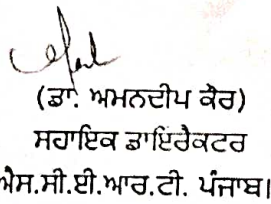 (ਡਾ. ਅਮਨਦੀਪ ਕੌਰ)
ਸਹਾਇਕ ਡਾਇਰੈਕਟਰ
ਐਸ.ਸੀ.ਈ.ਆਰ.ਟੀ. ਪੰਜਾਬ।